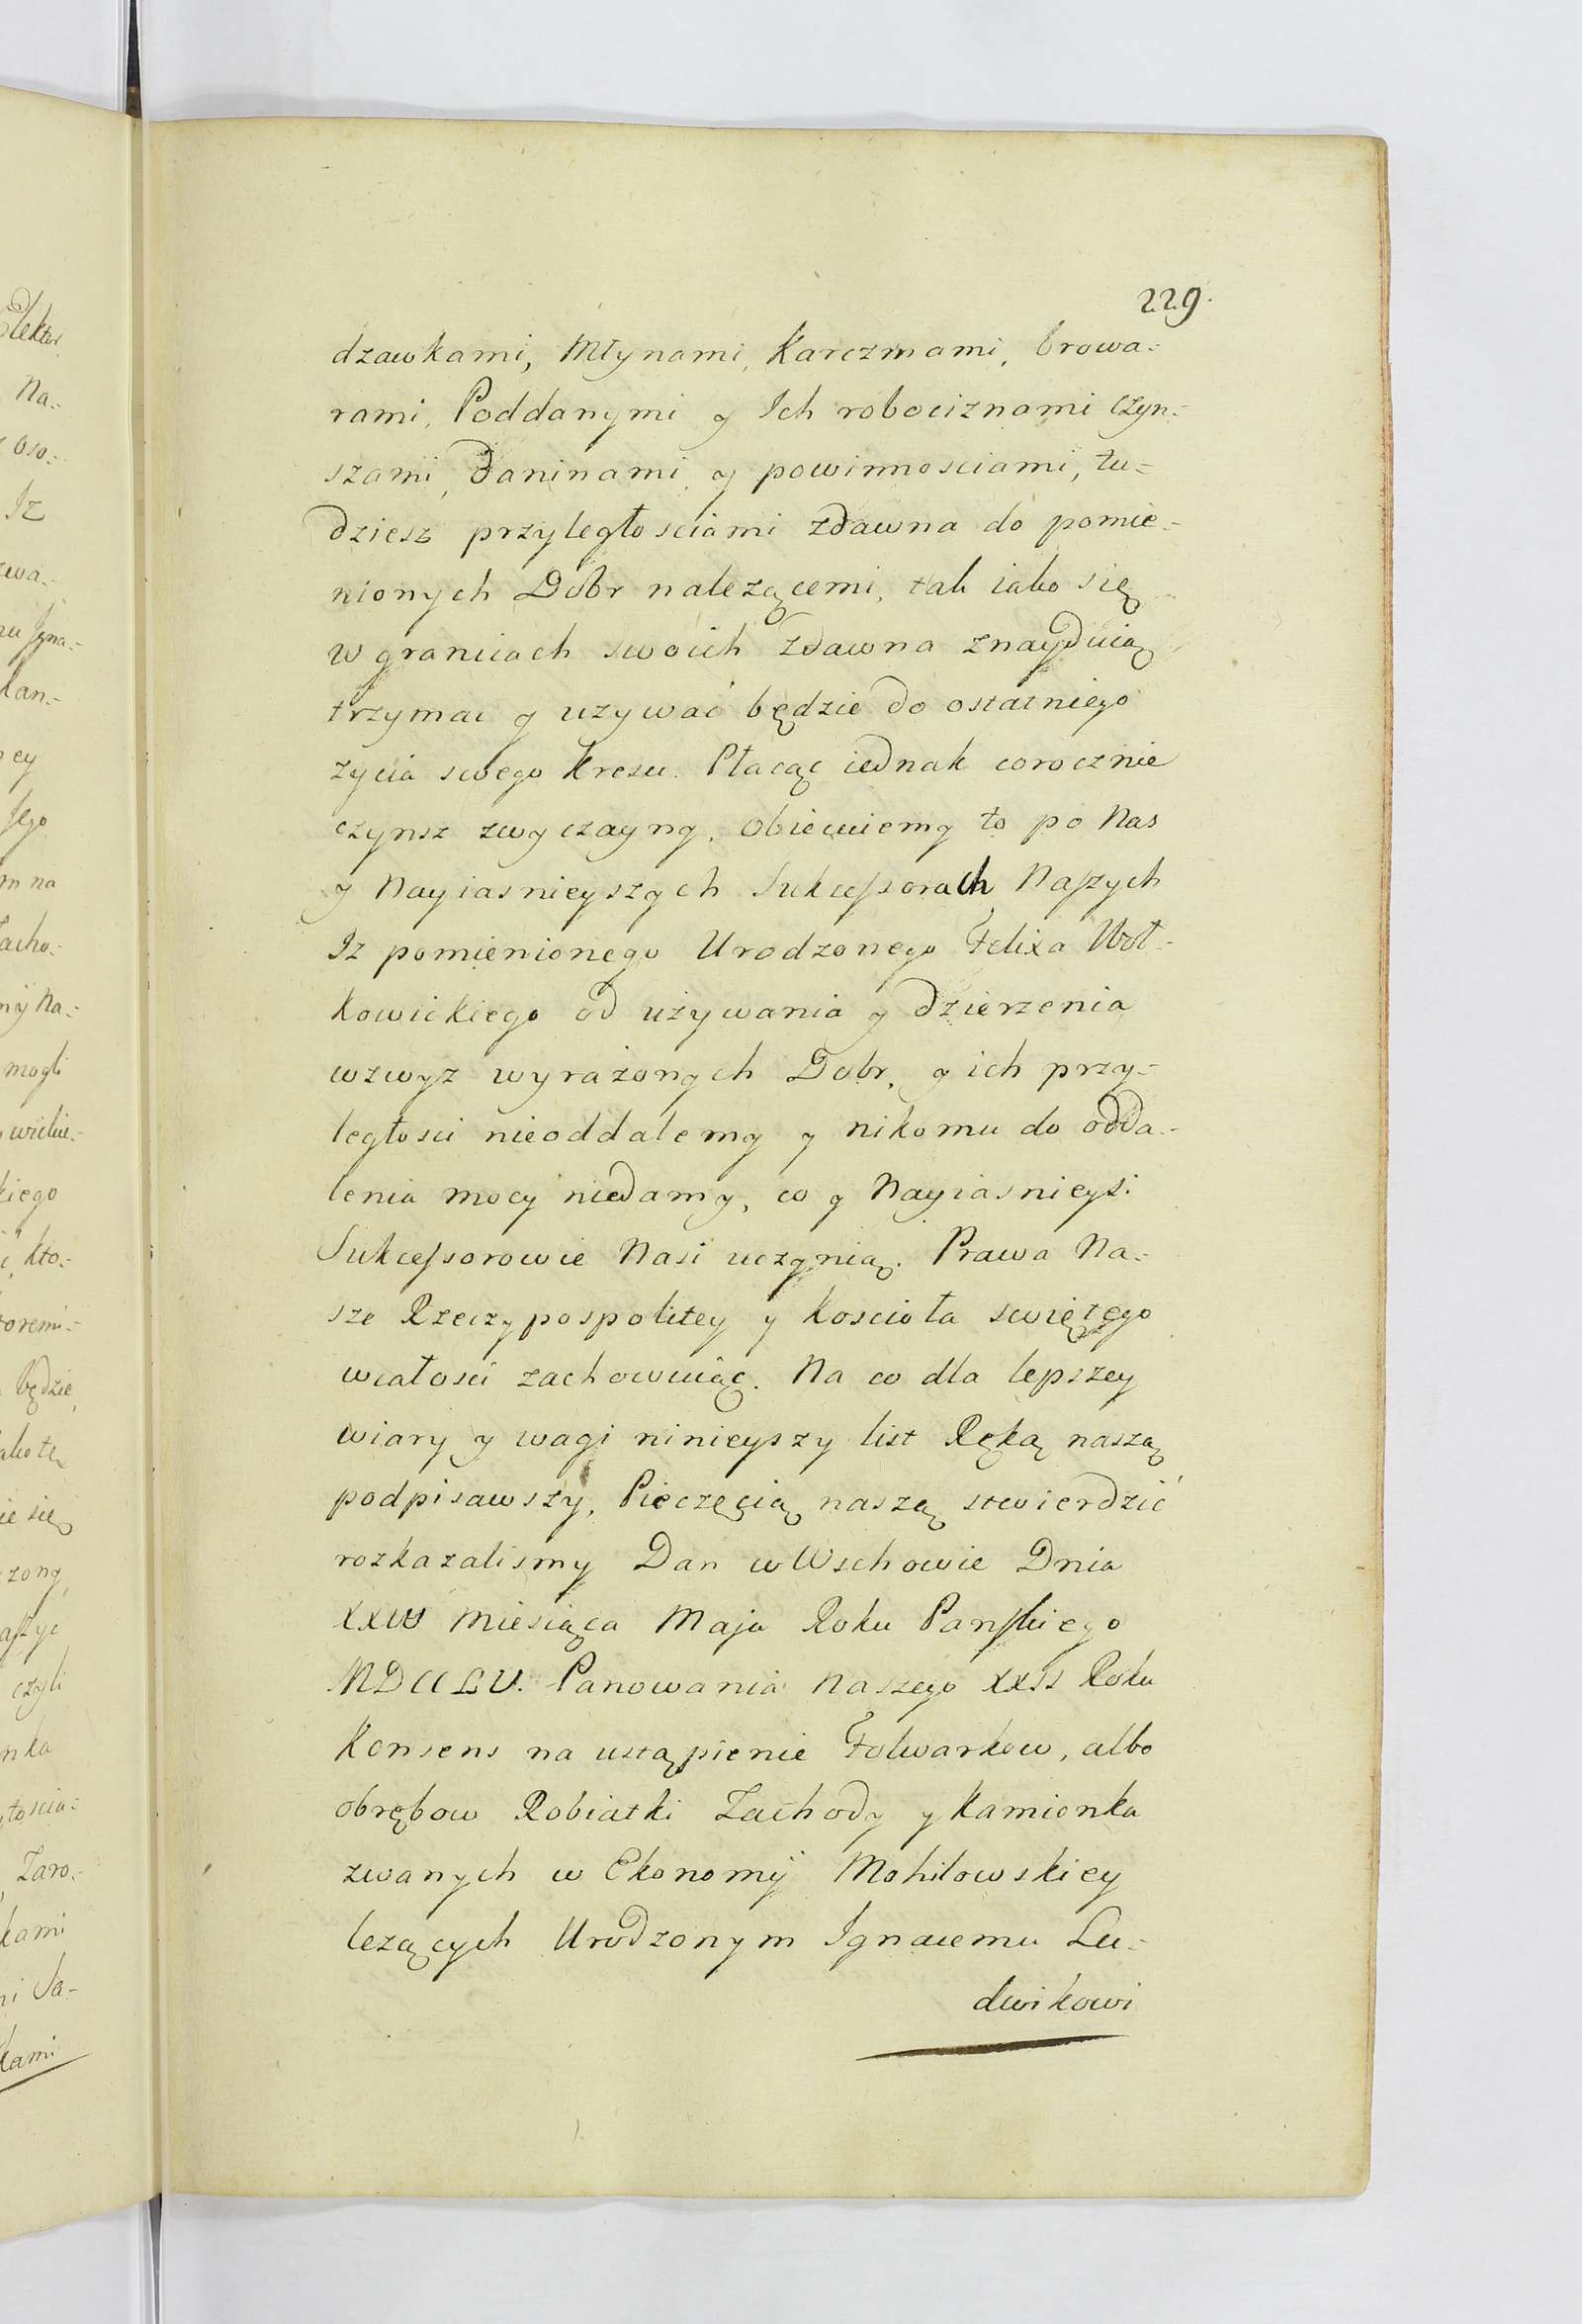 229.
dzawkami, Młynami, Karczmami, browa=
rami, Poddanymi y Ich robociznami czyn=
szami, Daninami, y powinnosciami, tu=
dziesz przyległosciami zdawna do pomie=
nionych Dobr nalezącemi, tak iako się
w granicach swoich zdawna znayduią
trzymac y uzywać będzie do ostatniego
zycia swego kresu. Płacąc iednak corocznie
czynsz zwyczayny. Obiecuiemy to po Nas
y Nayiasnieyszych Sukceſsorach Naſzych
Iz pomienionego Urodzonego Felixa Woł=
kowickiego od używania y dzierzenia
wzwyz wyrażonych Dobr, y ich przy=
ległosci nieoddalemy y nikomu do odda=
lenia mocy niedamy, co y Nayiasnieysi
Sukceſsorowie Nasi uczynią. Prawa Na=
sze Rzeczypospolitey y Koscioła swiętego
wcałosci zachowuiąc. Na co dla lepszey
wiary y wagi ninieyszy list Ręką naszą
podpisawszy, Pieczęcią naszą stwierdzić
rozkazalismy Dan w Wschowie Dnia
miesiąca Maja Roku Panſkiego
MDCCLV. Panowania Naszego XXII Roku
Konsens na ustąpienie Folwarkow, albo
obrębow Robiatki Zachody y Kamionka
zwanych w Ekonomij Mohilowskiey
lezących Urodzonym Ignacemu Lu=
dwikowi
Elektor
Na=
oso=
Iz
zwa=
ey
Jego
m na
Zacho=
Na=
mogli
kiego
kto=
oremi=
będzie
ie się
zony
czyli
nka
Zaro=
kami
kami